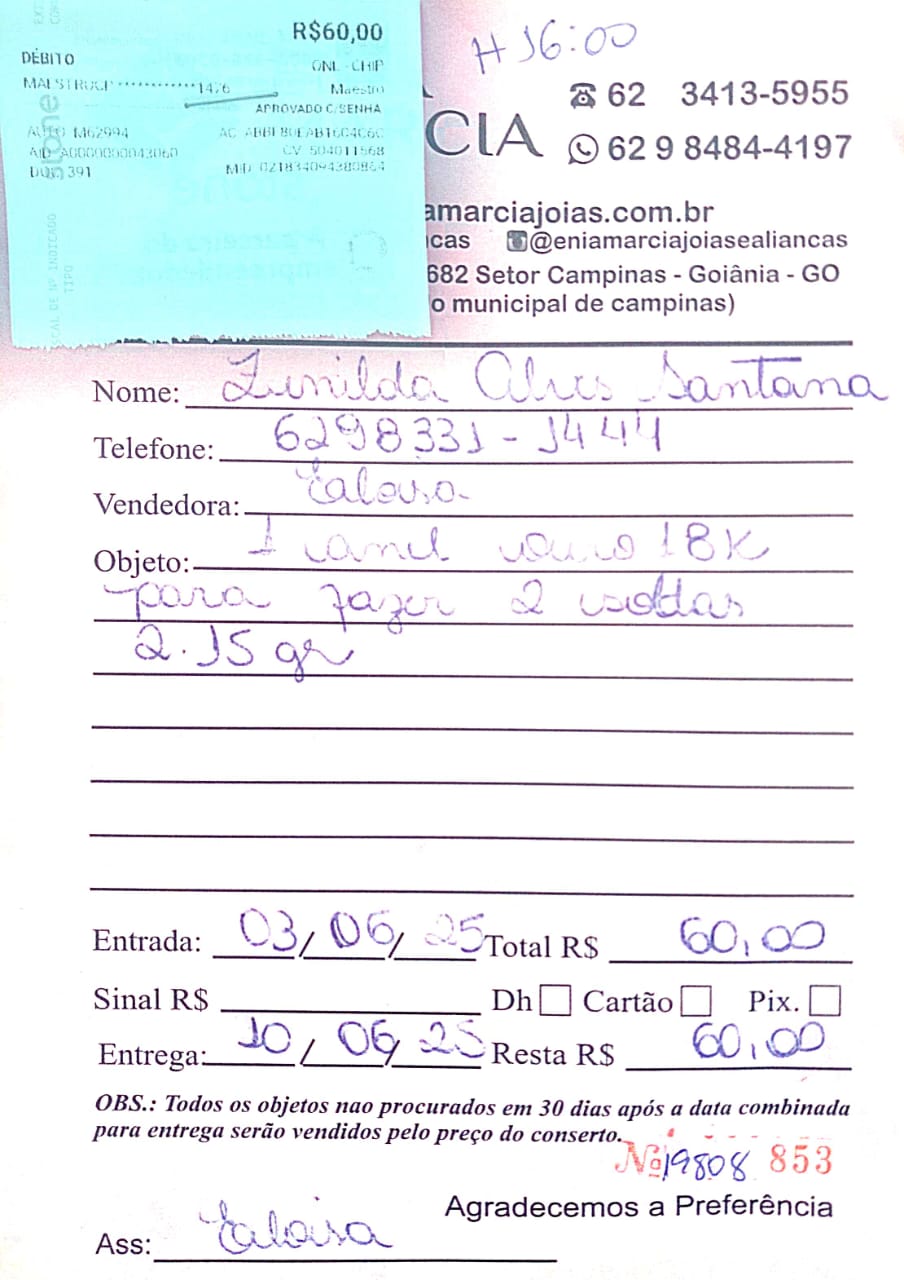 R$60,00
DÉBITO
ONL - CHIP
1476
Maestro
APROVADO C/SENHA
AUTO M62994
CV 504011568
DOC 391
H 16:00
62 3413-5955
CIA
62 9 8484-4197
amarciajoias.com.br
cas @eniamarciajoiasealiancas
682 Setor Campinas - Goiânia - GO
o municipal de campinas)
Nome: Zenilda Alves Santana
Telefone: 6298331-1444
Vendedora: Ealoisa
Objeto: 1 anel ouro 18K
para fazer 2 soldas
2.15 gr
Entrada: 03/06/25 Total R$ 60,00
Sinal R$ Dh Cartão Pix.
Entrega: 10/06/25 Resta R$ 60,00
OBS.: Todos os objetos nao procurados em 30 dias após a data combinada
para entrega serão vendidos pelo preço do conserto.
Nº 19808 853
Agradecemos a Preferência
Ass: Ealoisa